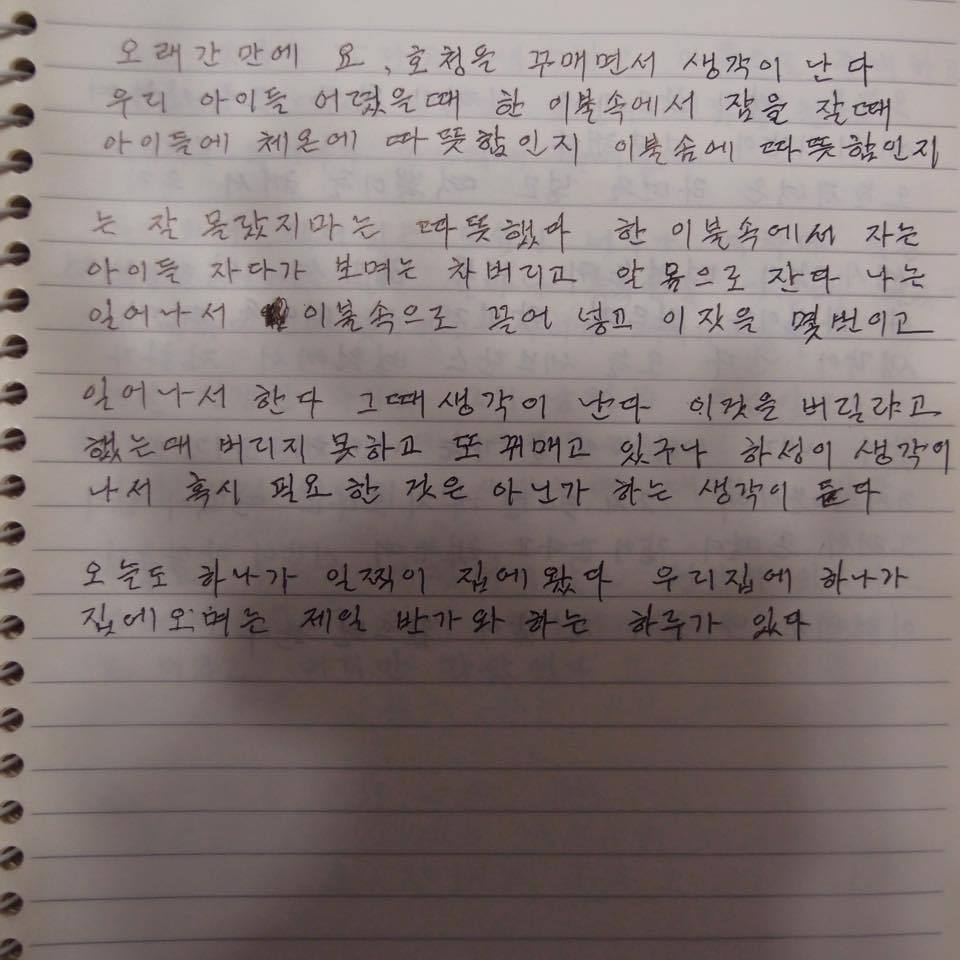 오래간만에 요, 호청을 꾸매면서 생각이 난다
우리 아이들 어렸을때 한 이불속에서 잠을 잘때
아이들에 체온에 따뜻함인지 이불솜에 따뜻함인지
는 잘 몰랐지마는 따뜻했다 한 이불속에서 자는
아이들 자다가 보며는 차버리고 알몸으로 잔다 나는
일어나서 이불속으로 끌어 넣고 이짓을 몇번이고
일어나서 한다 그때생각이 난다 이것을 버릴랴고
했는대 버리지 못하고 또 꾸매고 있구나 하성이 생각이
나서 혹시 필요한 것은 아닌가 하는 생각이 든다
오늘도 하나가 일찍이 집에왔다 우리집에 하나가
집에오며는 제일 반가와 하는 하루가 있다